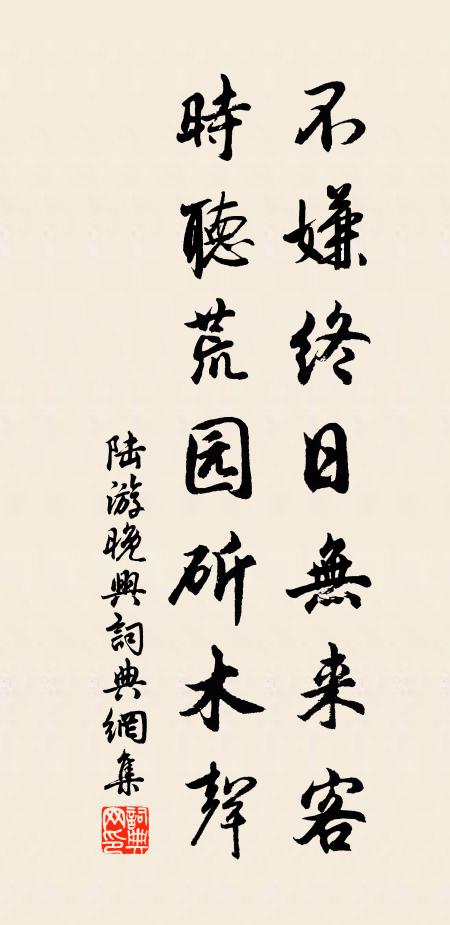 不嫌终日無来客
時聽荒园斫木聲
陆游晚興詞典網集
詞典網印